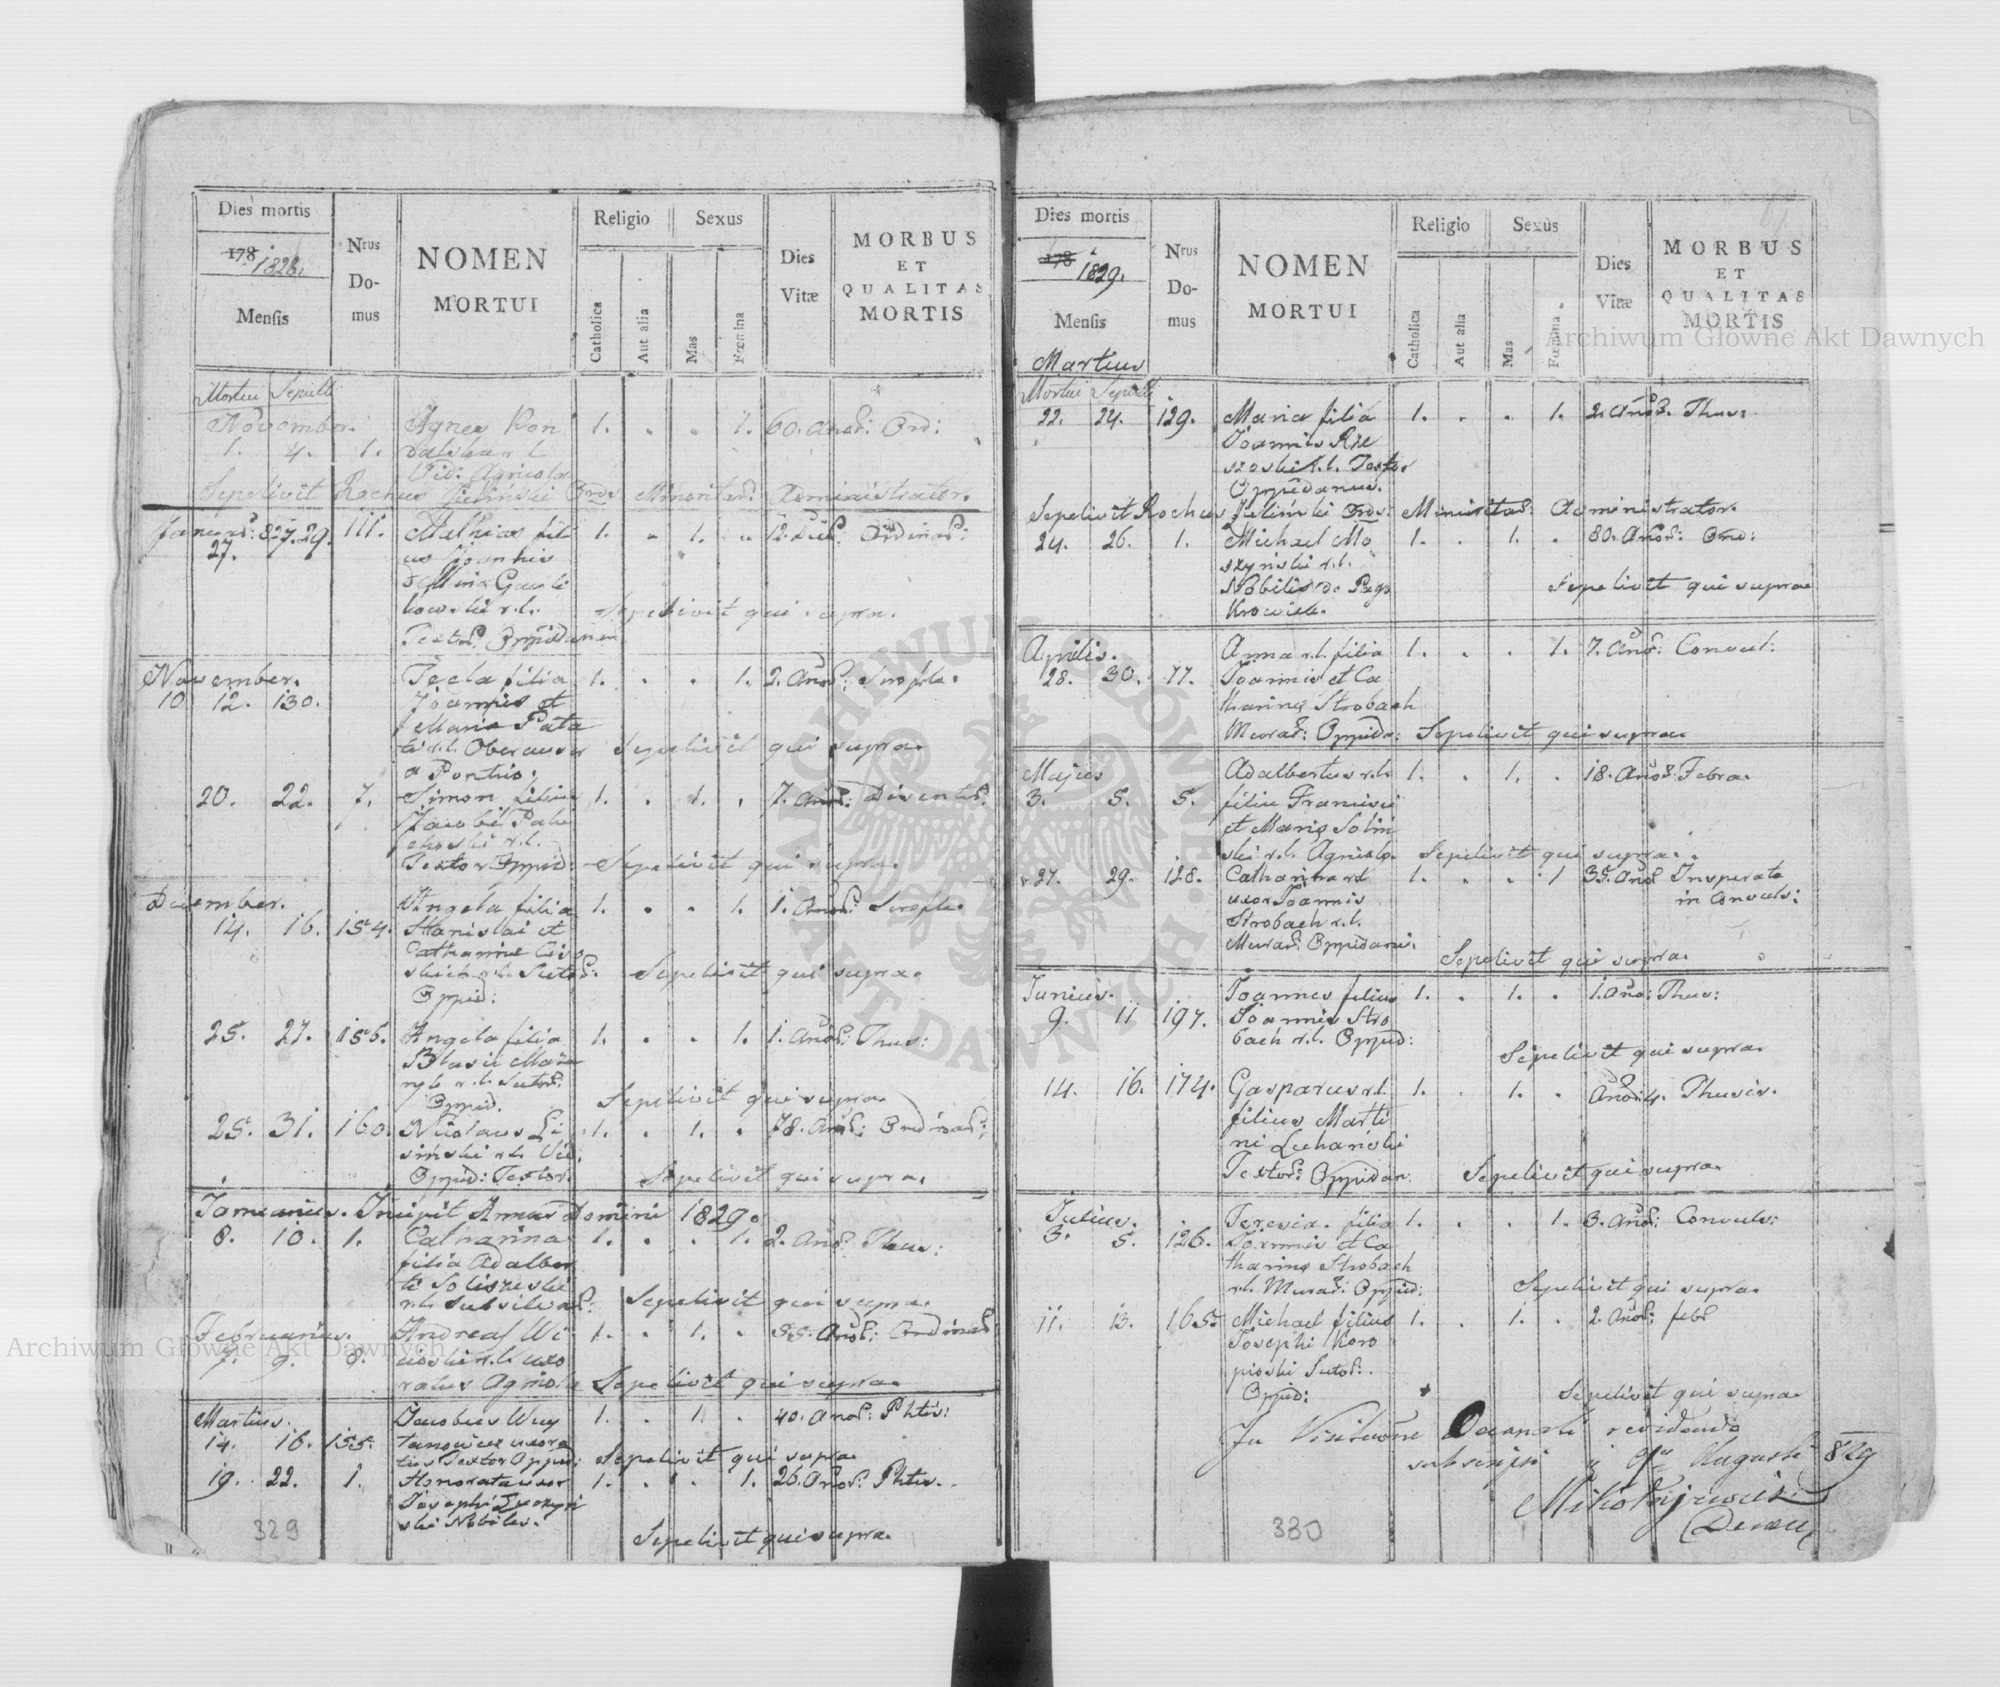 Dies mortis
178 1828.
Mensis
Nrus Domus
NOMEN
MORTUI
Religio
Catholica
Aut alia
Sexus
Mas
Fœmina
Dies
Vitæ
MORBUS
ET
QUALITAS
MORTIS
Mortui Sepulti
November.
1. 4. 1. Agnes Kon 1. . . 1. 60. Anor: Ord:
Vid: Agricola
Sepelivit Rochus Zielinski Ords Minoritar: Administrator.
27. 29. 111. Mathias fili 1. . 1. . 12. Ordinar:
us Joannis
kowski r.l. Sepelivit qui supra.
Textor: Oppidanem
November.
10 12. 130. Tecla filia 1. . . 1. 2. Anor: Scrofla.
Joannis et
Maria Pata
Sepelivit qui supra.
20. 22. 7. Simon filius 1. . 1. . 7. Anor: Disenter.
Jacobi
Textor Oppid: Sepelivit qui supra.
December.
14. 16. 154. Angela filia 1. . . 1. 1. Anor: Scrofla.
Stanislai et
Catharine
Sutor: Sepelivit qui supra.
Oppid:
25. 27. 156. Angela filia 1. . . 1. 1. Anor: Thus:
Blasii Maza
r.l. Sutor:
Oppid. Sepelivit qui supra.
25. 31. 160. Nicolaus Li 1. . 1. . 78. Anor: Ordinar:
sinski r.l. Vid.
Oppid: Textor. Sepelivit qui supra.
Januarius. Incipit Annus Domini 1829.
8. 10. 1. Catharina 1. . . 1. 2. Anor: Thus:
filia Adalber
Sepelivit qui supra.
Februarius.
7. 9. 8. Andreas Wi 1. . 1. . 55. Anor: Ordinar:
r.l. uxo
ratus Agricola Sepelivit qui supra.
Martius.
14. 16. 155. Jacobus Woy 1. . 1. . 40. Anor: Phtis:
tanowicz uxora
tus Textor Oppid: Sepelivit qui supra
19. 22. 1. Honorata uxor 1. . . 1. 26. Anor: Phtis.
Josephi
ski Nobiles. Sepelivit qui supra.
329
Dies mortis
178 1829.
Mensis
Martius
Nrus Domus
NOMEN
MORTUI
Religio
Catholica
Aut alia
Sexus
Mas
Fœmina
Dies
Vitæ
MORBUS
ET
QUALITAS
MORTIS
Mortui Sepulti
22. 24. 129. Maria filia 1. . . 1. 2. Anor. Thus:
Joannis Rze
szoski r.l. Textor
Oppidanus.
Sepelivit Rochus Zielinski Ords: Minoritar: Administrator.
24. 26. 1. Michael Mo 1. . 1. . 80. Anor: Ord:
szynski r.l.
Nobilis de Pago Sepelivit qui supra
Aprilis.
28. 30. 77. Anna r.l. filia 1. . . 1. 7. Anor: Convul:
Joannis et Ca
tharinę Strobach
Murar: Oppida: Sepelivit qui supra.
Majus
3. 5. 5. Adalbertus r.l. 1. . 1. . 18. Anor: Febra.
filiu Francisci
et Marię Solin
ski r.l. Agricola. Sepelivit qui supra.
27. 29. 128. Catharina r.l. 1. . . 1 35. Anor Insperata
uxor Joannis in Convuls:
Strobach r.l.
Murar: Oppidani. Sepelivit qui supra.
Junius.
9. 11 197. Joannes filius 1. . 1. . 1. Ano: Thus:
Joannis Stro
bach r.l. Oppid: Sepelivit qui supra.
14. 16. 174. Gasparus r.l. 1. . 1. . Anor: 4. Thusis.
filius Marti
ni Luhanski
Textor: Oppidan: Sepelivit qui supra.
Julius.
3. 5. 126. Teresia. filia 1. . . 1. 3. Anor: Convuls:
Joannis et Ca
tharinę Strobach
r.l. Murar: Oppid: Sepelivit qui supra.
11. 13. 165. Michael filius 1. . 1. . 2. Anor: febr
Josephi Koro
pioski Sutor:
Oppid: Sepelivit qui supra.
In Visitatione Decanali revidendo
subscripsi 9 Augusti 829
Decan
330
Archiwum Główne Akt Dawnych
Archiwum Główne Akt Dawnych
ARCHIWUM GŁÓWNE AKT DAWNYCH